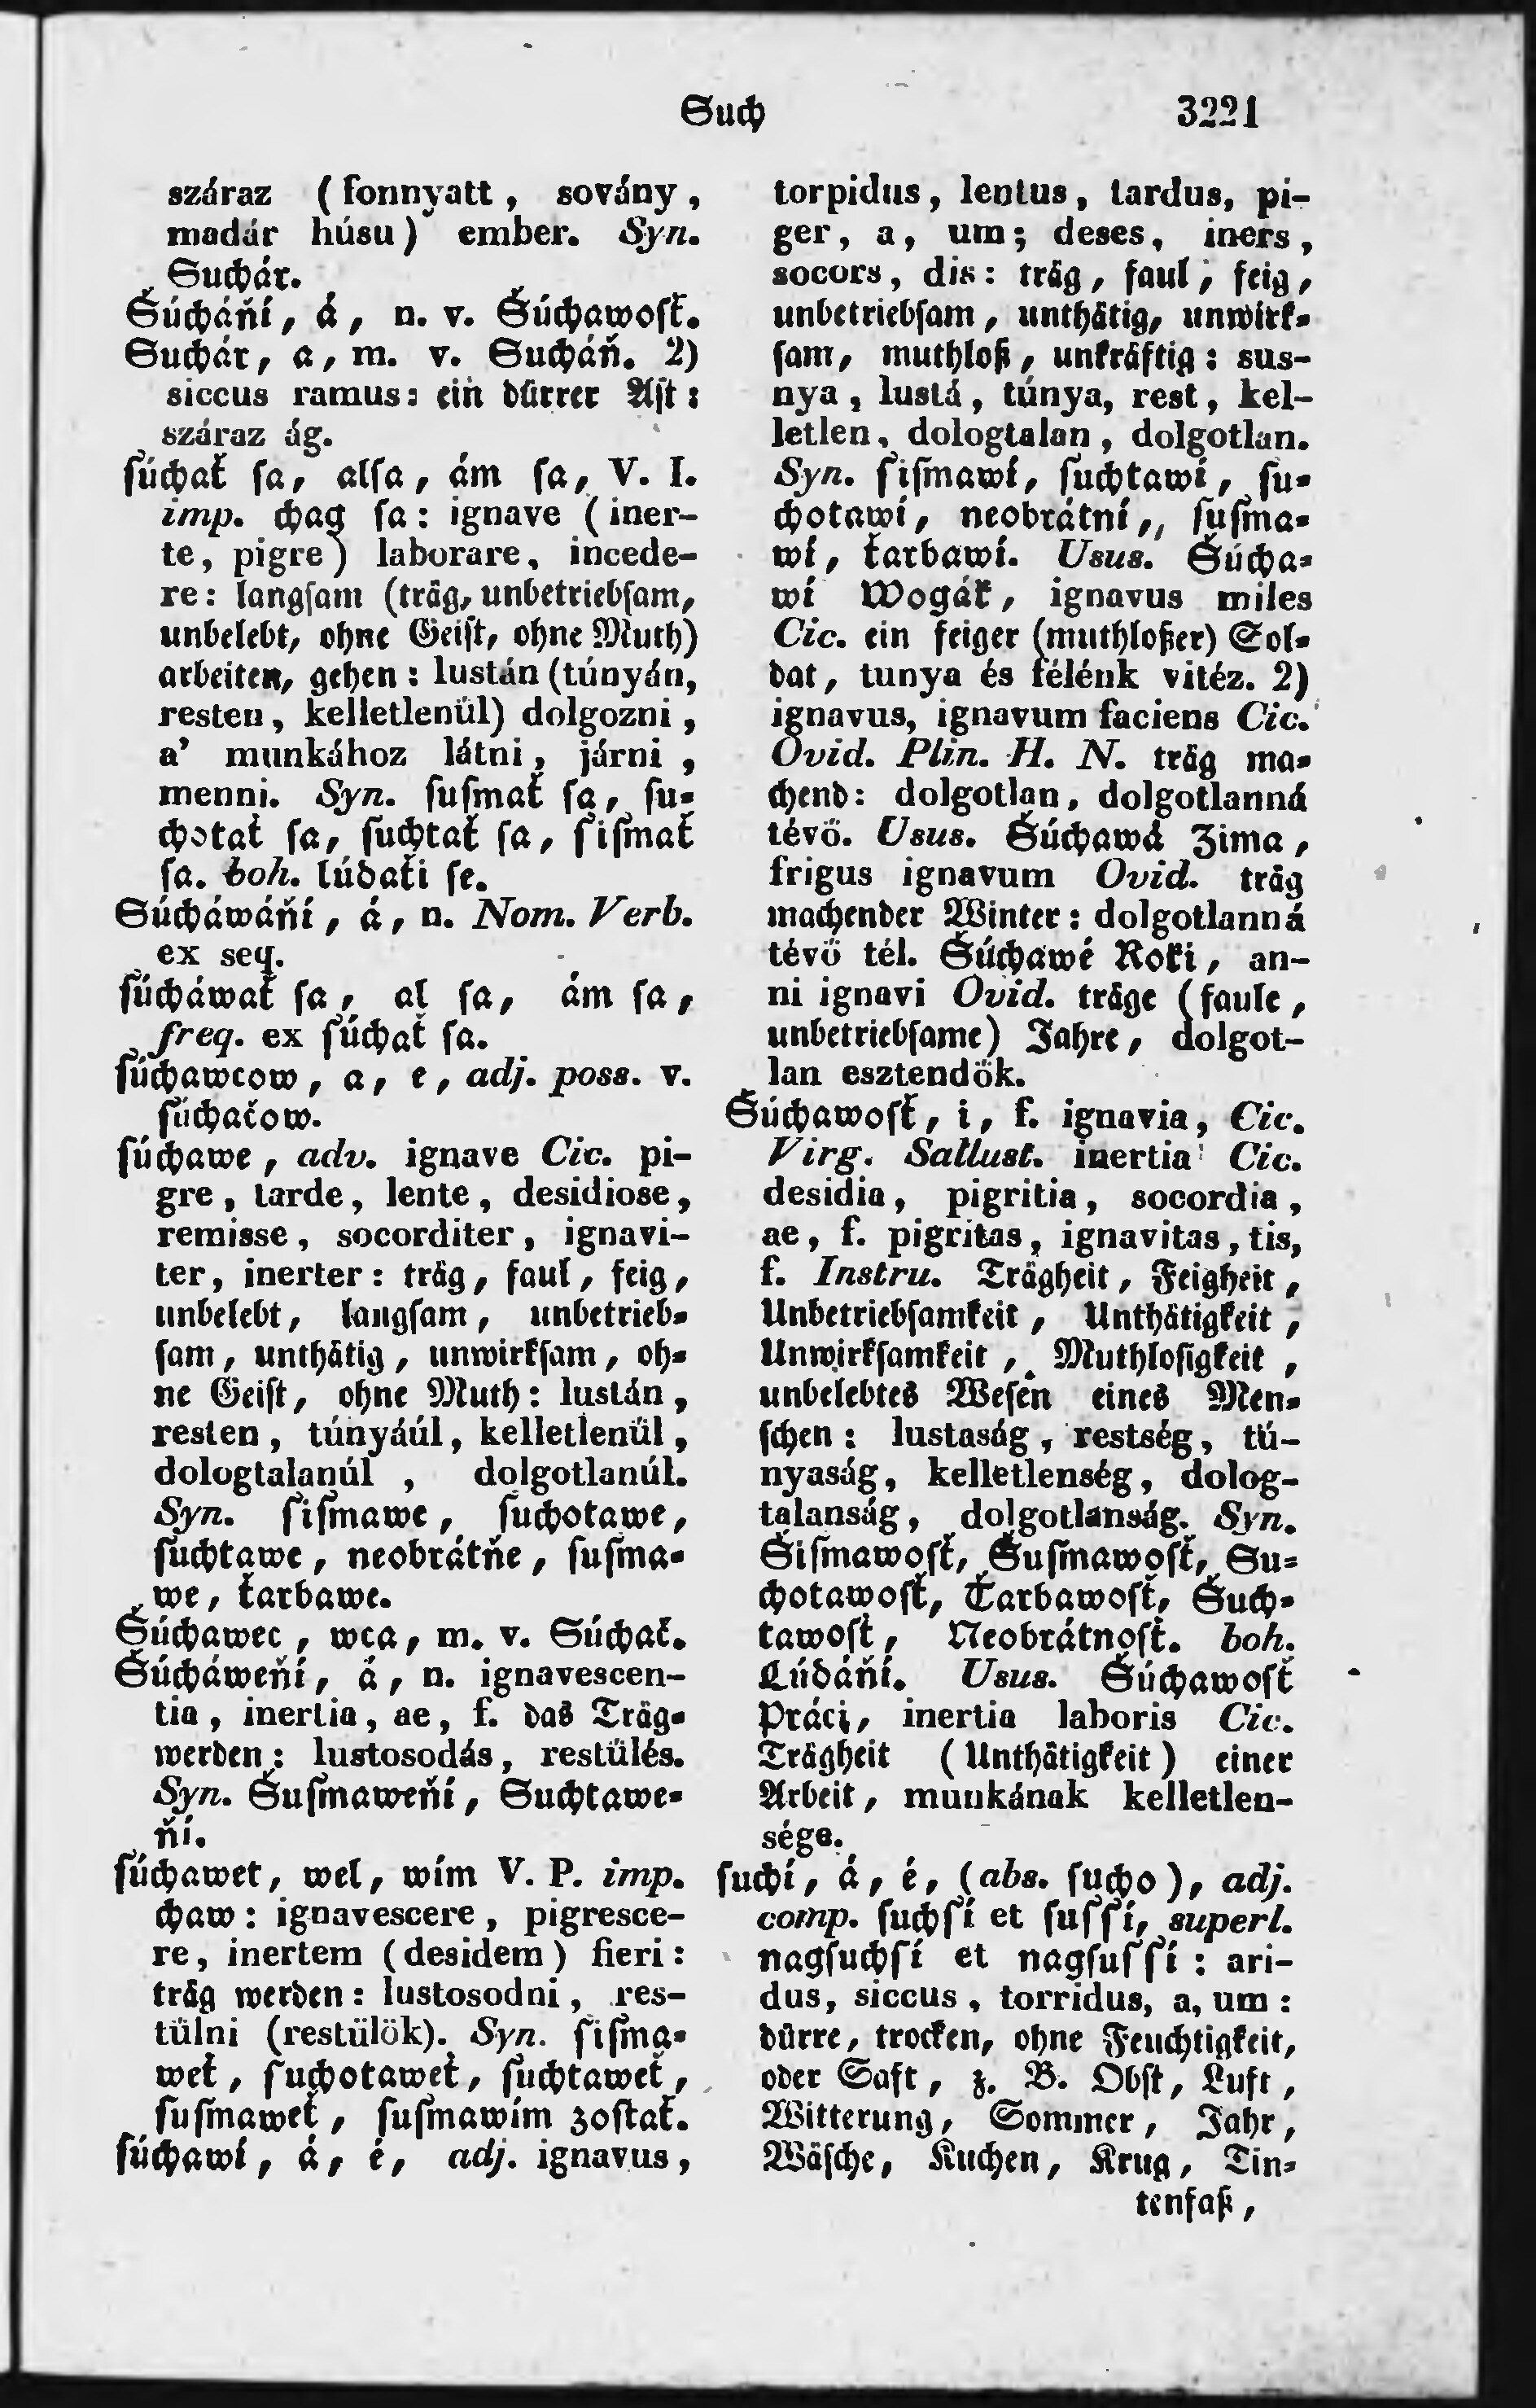 Such
3221
száraz (fonnyatt, sovány,
madár húsu) ember. Syn.
Suchár.
Šúcháňí, á, n. v. Šúchawosť.
Suchár, a, m. v. Sucháň. 2)
siccus ramus: ein dürrer Aſt:
száraz ág.
ſ̌úchať ſa, alſa, ám ſa, V. I.
imp. chag ſa: ignave (iner-
te, pigre) laborare, incede-
re: langſam (träg, unbetriebſam,
unbelebt, ohne Geiſt, ohne Muth)
arbeiten, gehen: lustán (túnyán,
resten, kelletlenül) dolgozni,
a' munkához látni, járni,
menni. Syn. ſ̌uſmať ſa, ſ̌u-
chotať ſa, ſ̌uchtať ſa, ſ̌iſmať
ſa. boh. lúdaťi ſe.
Šúcháwáňí, á, n. Nom. Verb.
ex seq.
ſ̌úcháwať ſa, al ſa, ám ſa,
freq. ex ſ̌úchať ſa.
ſ̌úchawcow, a, e, adj. poss. v.
ſ̌úchačow.
ſ̌úchawe, adv. ignave Cic. pi-
gre, tarde, lente, desidiose,
remisse, socorditer, ignavi-
ter, inerter: träg, faul, feig,
unbelebt, langſam, unbetrieb-
ſam, unthätig, unwirkſam, oh-
ne Geiſt, ohne Muth: lustán,
resten, túnyáúl, kelletlenül,
dologtalanúl, dolgotlanúl.
Syn. ſ̌iſmawe, ſ̌uchotawe,
ſ̌uchtawe, neobrátňe, ſ̌uſma-
we, ťarbawe.
Šúchawec, wca, m. v. Šúchač.
Šúcháweňí, á, n. ignavescen-
tia, inertia, ae, f. das Träg-
werden: lustosodás, restülés.
Syn. Šuſmaweňí, Šuchtawe-
ňí.
ſ̌úchawet, wel, wím V. P. imp.
chaw: ignavescere, pigresce-
re, inertem (desidem) fieri:
träg werden: lustosodni, res-
tülni (restülök). Syn. ſ̌iſma-
weť, ſ̌uchotaweť, ſ̌uchtaweť,
ſ̌uſmaweť, ſ̌uſmawím zoſtať.
ſ̌úchawí, á, é, adj. ignavus,
torpidus, lentus, tardus, pi-
ger, a, um; deses, iners,
socors, dis: träg, faul, feig,
unbetriebſam, unthätig, unwirk-
ſam, muthloß, unkräftig: sus-
nya, lustá, túnya, rest, kel-
letlen, dologtalan, dolgotlan.
Syn. ſ̌iſmawí, ſ̌uchtawí, ſ̌u-
chotawí, neobrátní,, ſ̌uſma-
wí, ťarbawí. Usus. Šúcha-
wí Wogák, ignavus miles
Cic. ein feiger (muthloßer) Sol-
dat, tunya és félénk vitéz. 2)
ignavus, ignavum faciens Cic.
Ovid. Plin. H. N. träg ma-
chend: dolgotlan, dolgotlanná
tévö. Usus. Šúchawá Zima,
frigus ignavum Ovid. träg
machender Winter: dolgotlanná
tévö tél. Šúchawé Roki, an-
ni ignavi Ovid. träge (faule,
unbetriebſame) Jahre, dolgot-
lan esztendök.
Šúchawosť, i, f. ignavia, Cic.
Virg. Sallust. inertia Cic.
desidia, pigritia, socordia,
ae, f. pigritas, ignavitas, tis,
f. Instru. Trägheit, Feigheit,
Unbetriebſamkeit, Unthätigkeit,
Unwirkſamkeit, Muthloſigkeit,
unbelebtes Weſen eines Men-
ſchen: lustaság, restség, tú-
nyaság, kelletlenség, dolog-
talanság, dolgotlanság. Syn.
Šiſmawoſť, Šuſmawoſť, Šu-
chotawoſť, Ťarbawoſť, Šuch-
tawoſť, Neobrátnoſť. boh.
Lúdáňí. Usus. Šúchawoſť
Práci, inertia laboris Cic.
Trägheit (Unthätigkeit) einer
Arbeit, munkának kelletlen-
sége.
ſuchí, á, é, (abs. ſucho), adj.
comp. ſuchſ̌í et ſuſſ̌í, superl.
nagſuchſ̌í et nagſuſſ̌í: ari-
dus, siccus, torridus, a, um:
dürre, trocken, ohne Feuchtigkeit,
oder Saft, z. B. Obſt, Luft,
Witterung, Sommer, Jahr,
Wäſche, Kuchen, Krug, Tin-
tenfaß,